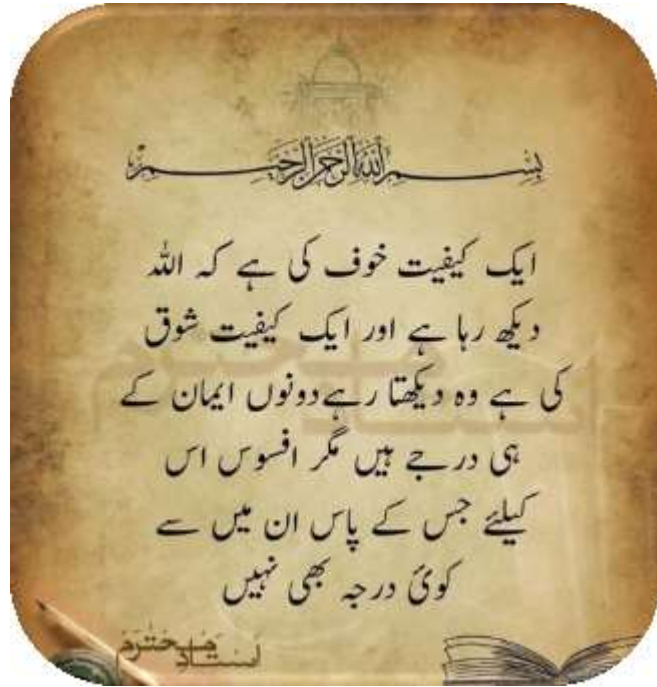 بِسْمِ اللهِ الرَّحْمٰنِ الرَّحِيْمِ
ایک کیفیت خوف کی ہے کہ اللہ
دیکھ رہا ہے اور ایک کیفیت شوق
کی ہے وہ دیکھتا رہے دونوں ایمان کے
ہی درجے ہیں مگر افسوس اس
کیلئے جس کے پاس ان میں سے
کوئ درجہ بھی نہیں
استادِ محترم